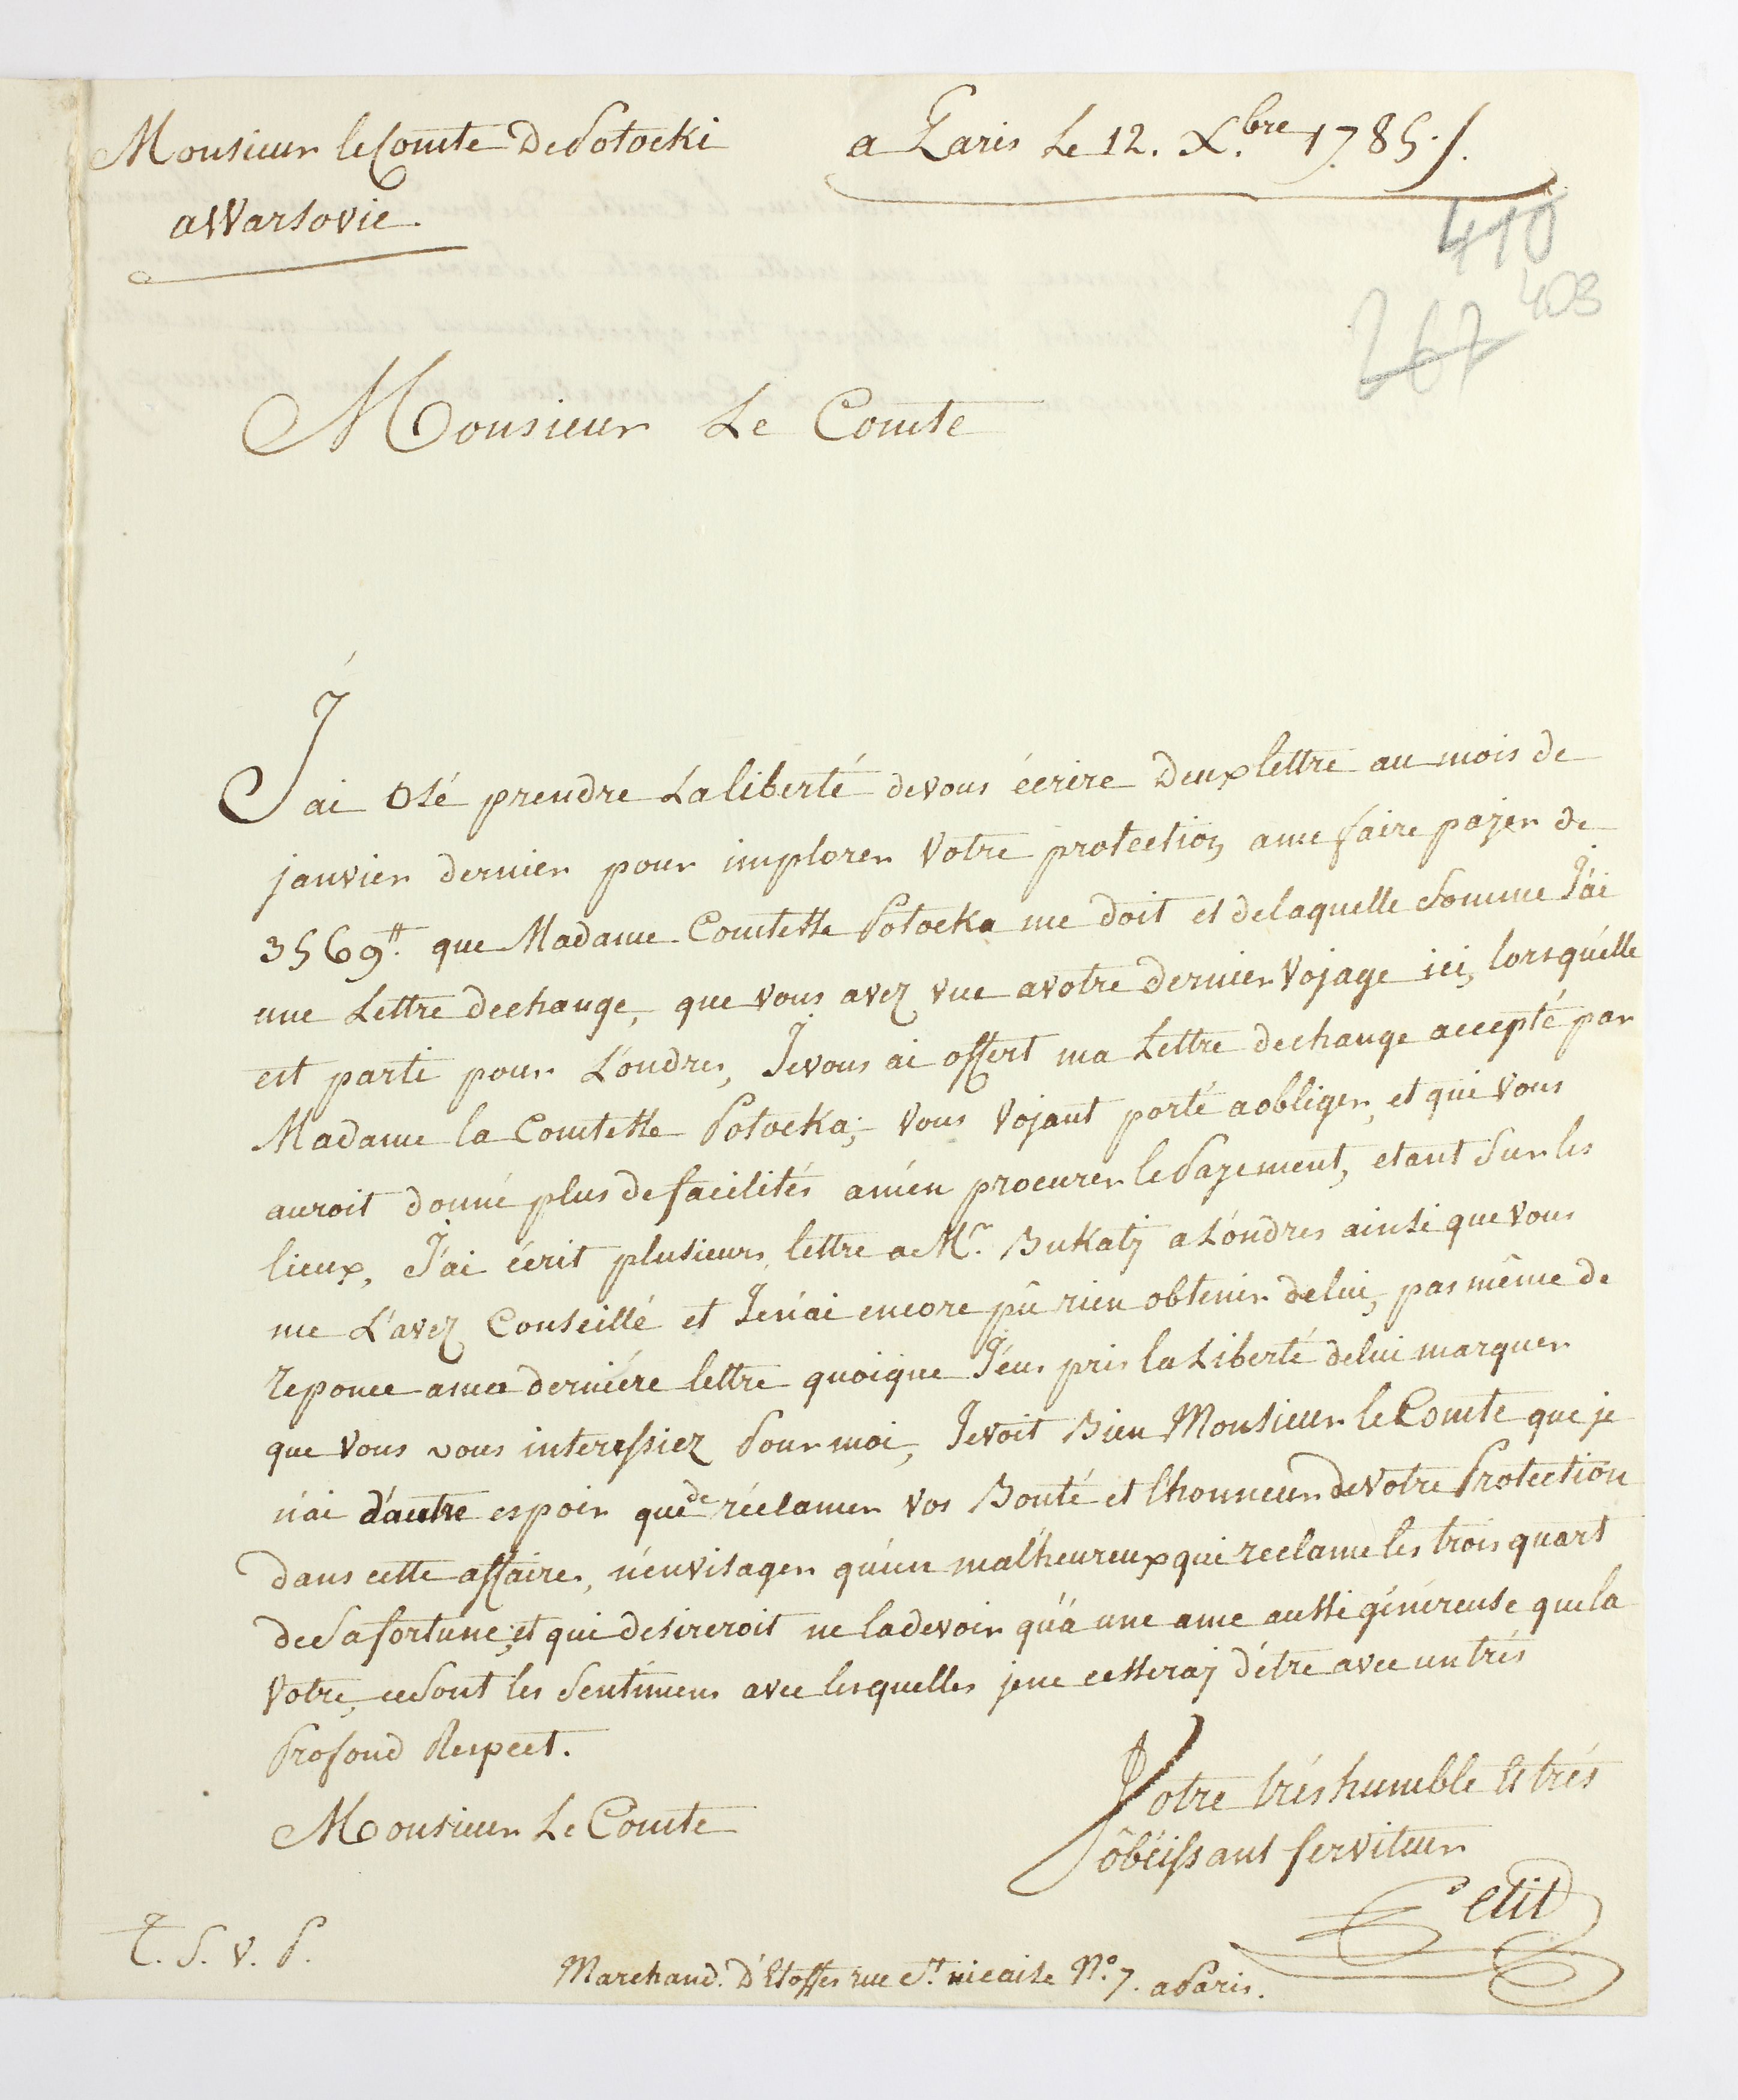 Monsieur le Comte De Potocki
a Paris Le 12. X.bre 1785.
a Warsovie.
410
403
267
Monsieur Le Comte
J'ai osé prendre La liberté de vous écrire Deux lettre au mois de
janvier dernier pour implorer Votre protection a me faire payer de
3569.tt que Madame Comtesse Potocka me doit et de laquelle Somme J'ai
une Lettre dechange, que vous avez vue a votre dernier Vojage ici, lorsqu'elle
est parti pour L'ondres, Je vous ai offert ma Lettre dechange accepté par
Madame la Comtesse Potocka; Vous Vojant porté a obliger, et qui Vous
auroit donné plus de facilités a m'en procurer le Payement, etant Sur les
lieux, J'ai écrit plusieurs lettre a Mr. Bukatj a L'ondres ainsi que Vous
me L'avez Conseillé et Je n'ai encore pû rien obtenir de lui, pas même de
reponce a ma derniére lettre quoique J'eus pris la Liberté de lui marquer
que Vous vous interessiez Pour moi, Je voit Bien Monsieur le Comte que je
n'ai d'autre espoir que de réclamer Vos Bonté et l'honneur de Votre Protection
dans cette affaire, n'envisager qu'un malheureux qui reclame les trois quart
de Sa fortune, et qui desireroit ne la devoir qu'a une ame aussi généreuse que la
Votre, ce Sont les Sentimens avec lesquelles je ne cesseraj d'étre avec un trés
Profond Respect.
Monsieur Le Comte
Votre trés humble Et trés
ôbéissant serviteur
Petit
T. S. V. P.
Marchand. D'Etoffes rue St. nicaise No. 7. a Paris.